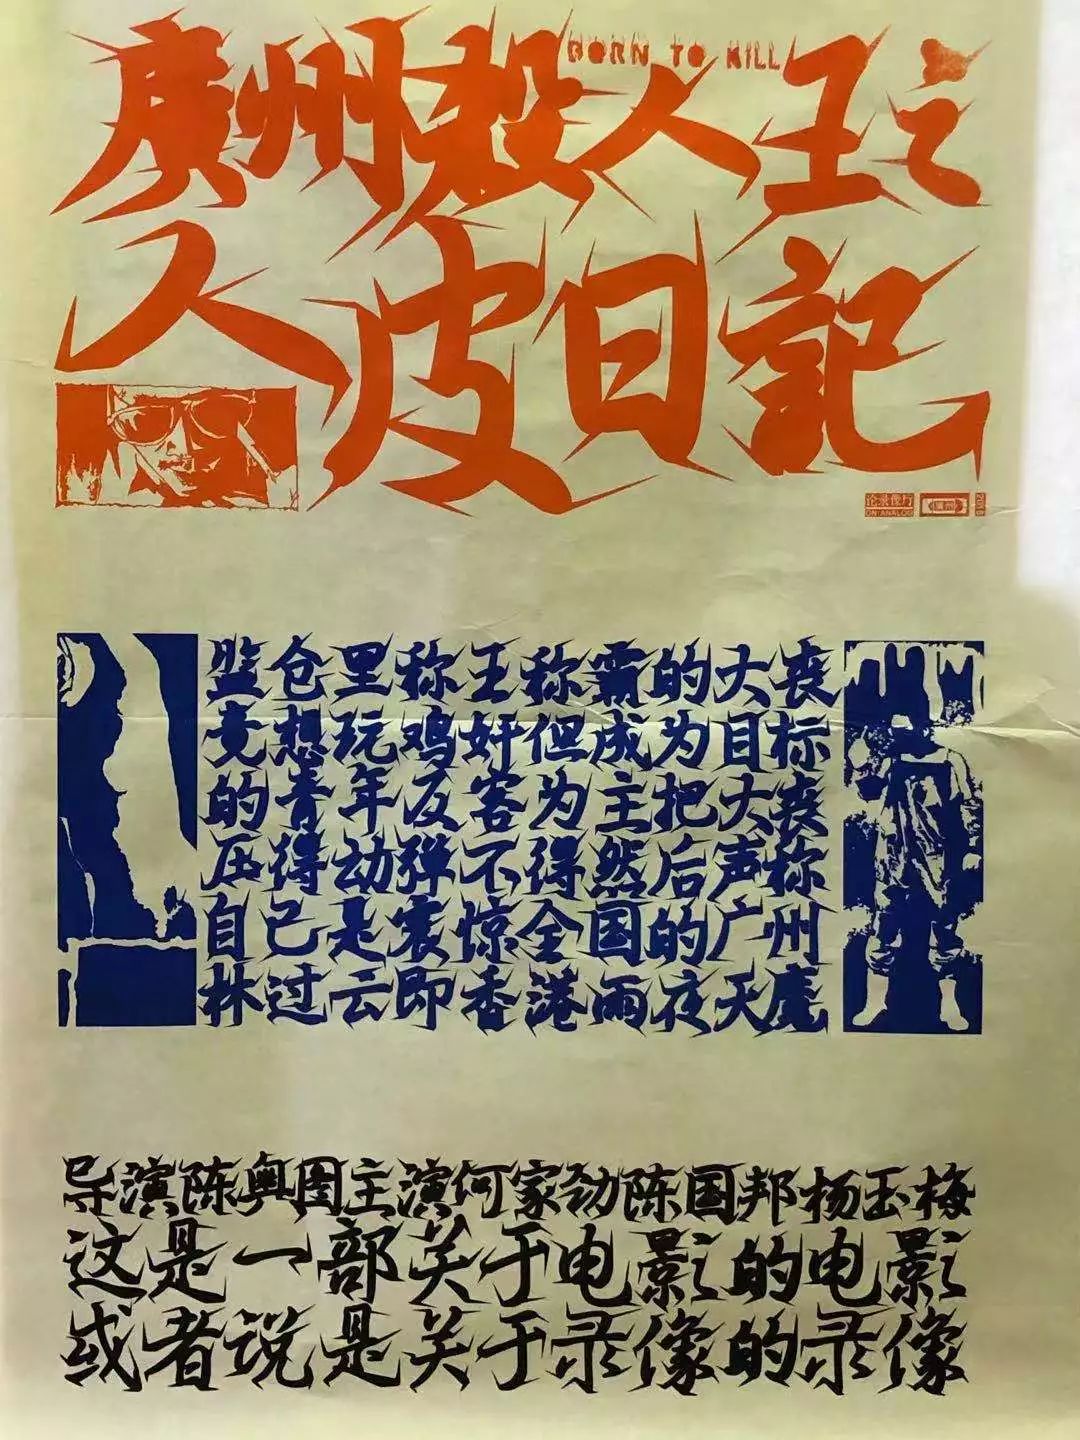 BORN TO KILL
廣州殺人王之
人皮日記
论录像厅
ON ANALOG
监仓里称王称霸的大丧
竟想玩鸡奸但成为目标
的青年反客为主把大丧
压得动弹不得然后声称
自己是震惊全国的广州
林过云即香港雨夜天魔
导演陈奥图主演何家劲陈国邦杨玉梅
这是一部关于电影的电影
或者说是关于录像的录像